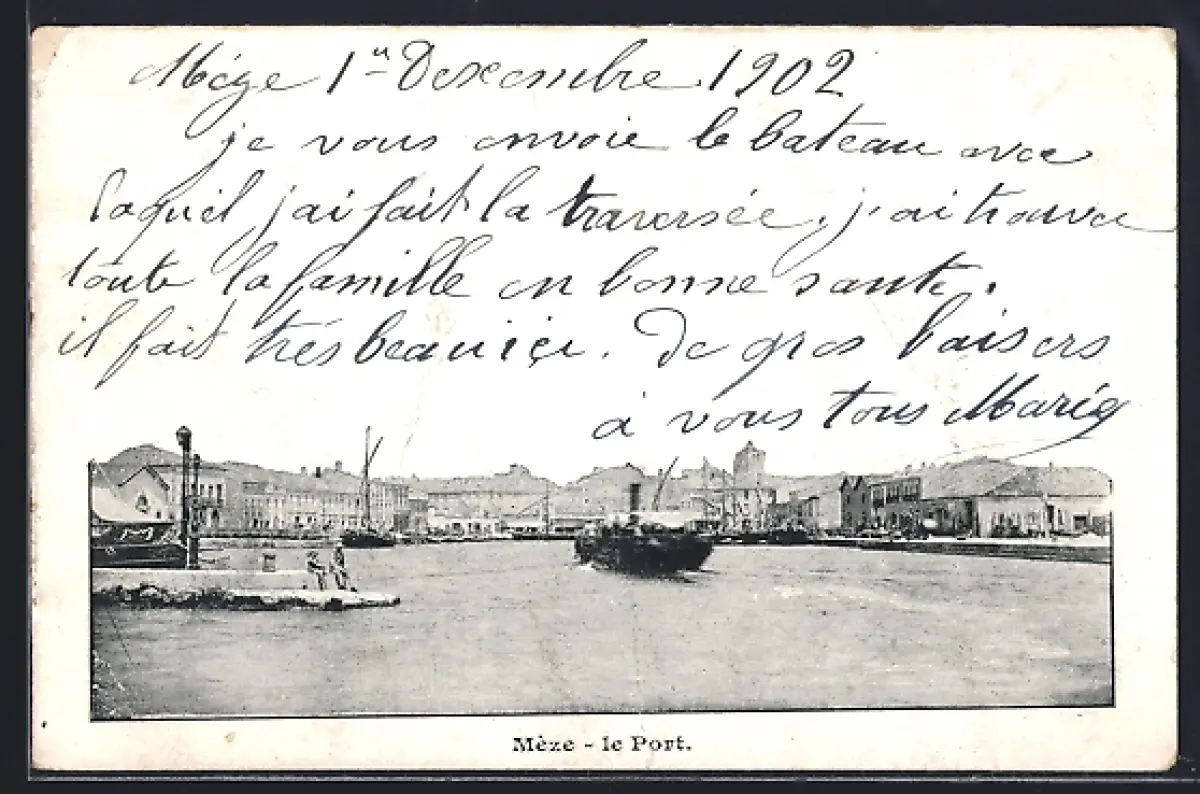 Mèze 1er Dexembre 1902
je vous envoie le bateau avec
laquel j'ai fait la traversée. j'ai trouvé
toute la famille en bonne sante.
il fait très beau içi. De gros baisers
à vous tous Marie
Mèze - le Port.